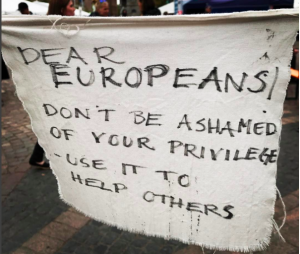 DEAR
EUROPEANS!
DON'T BE ASHAMED
OF YOUR PRIVILEGE
- USE IT TO
HELP OTHERS